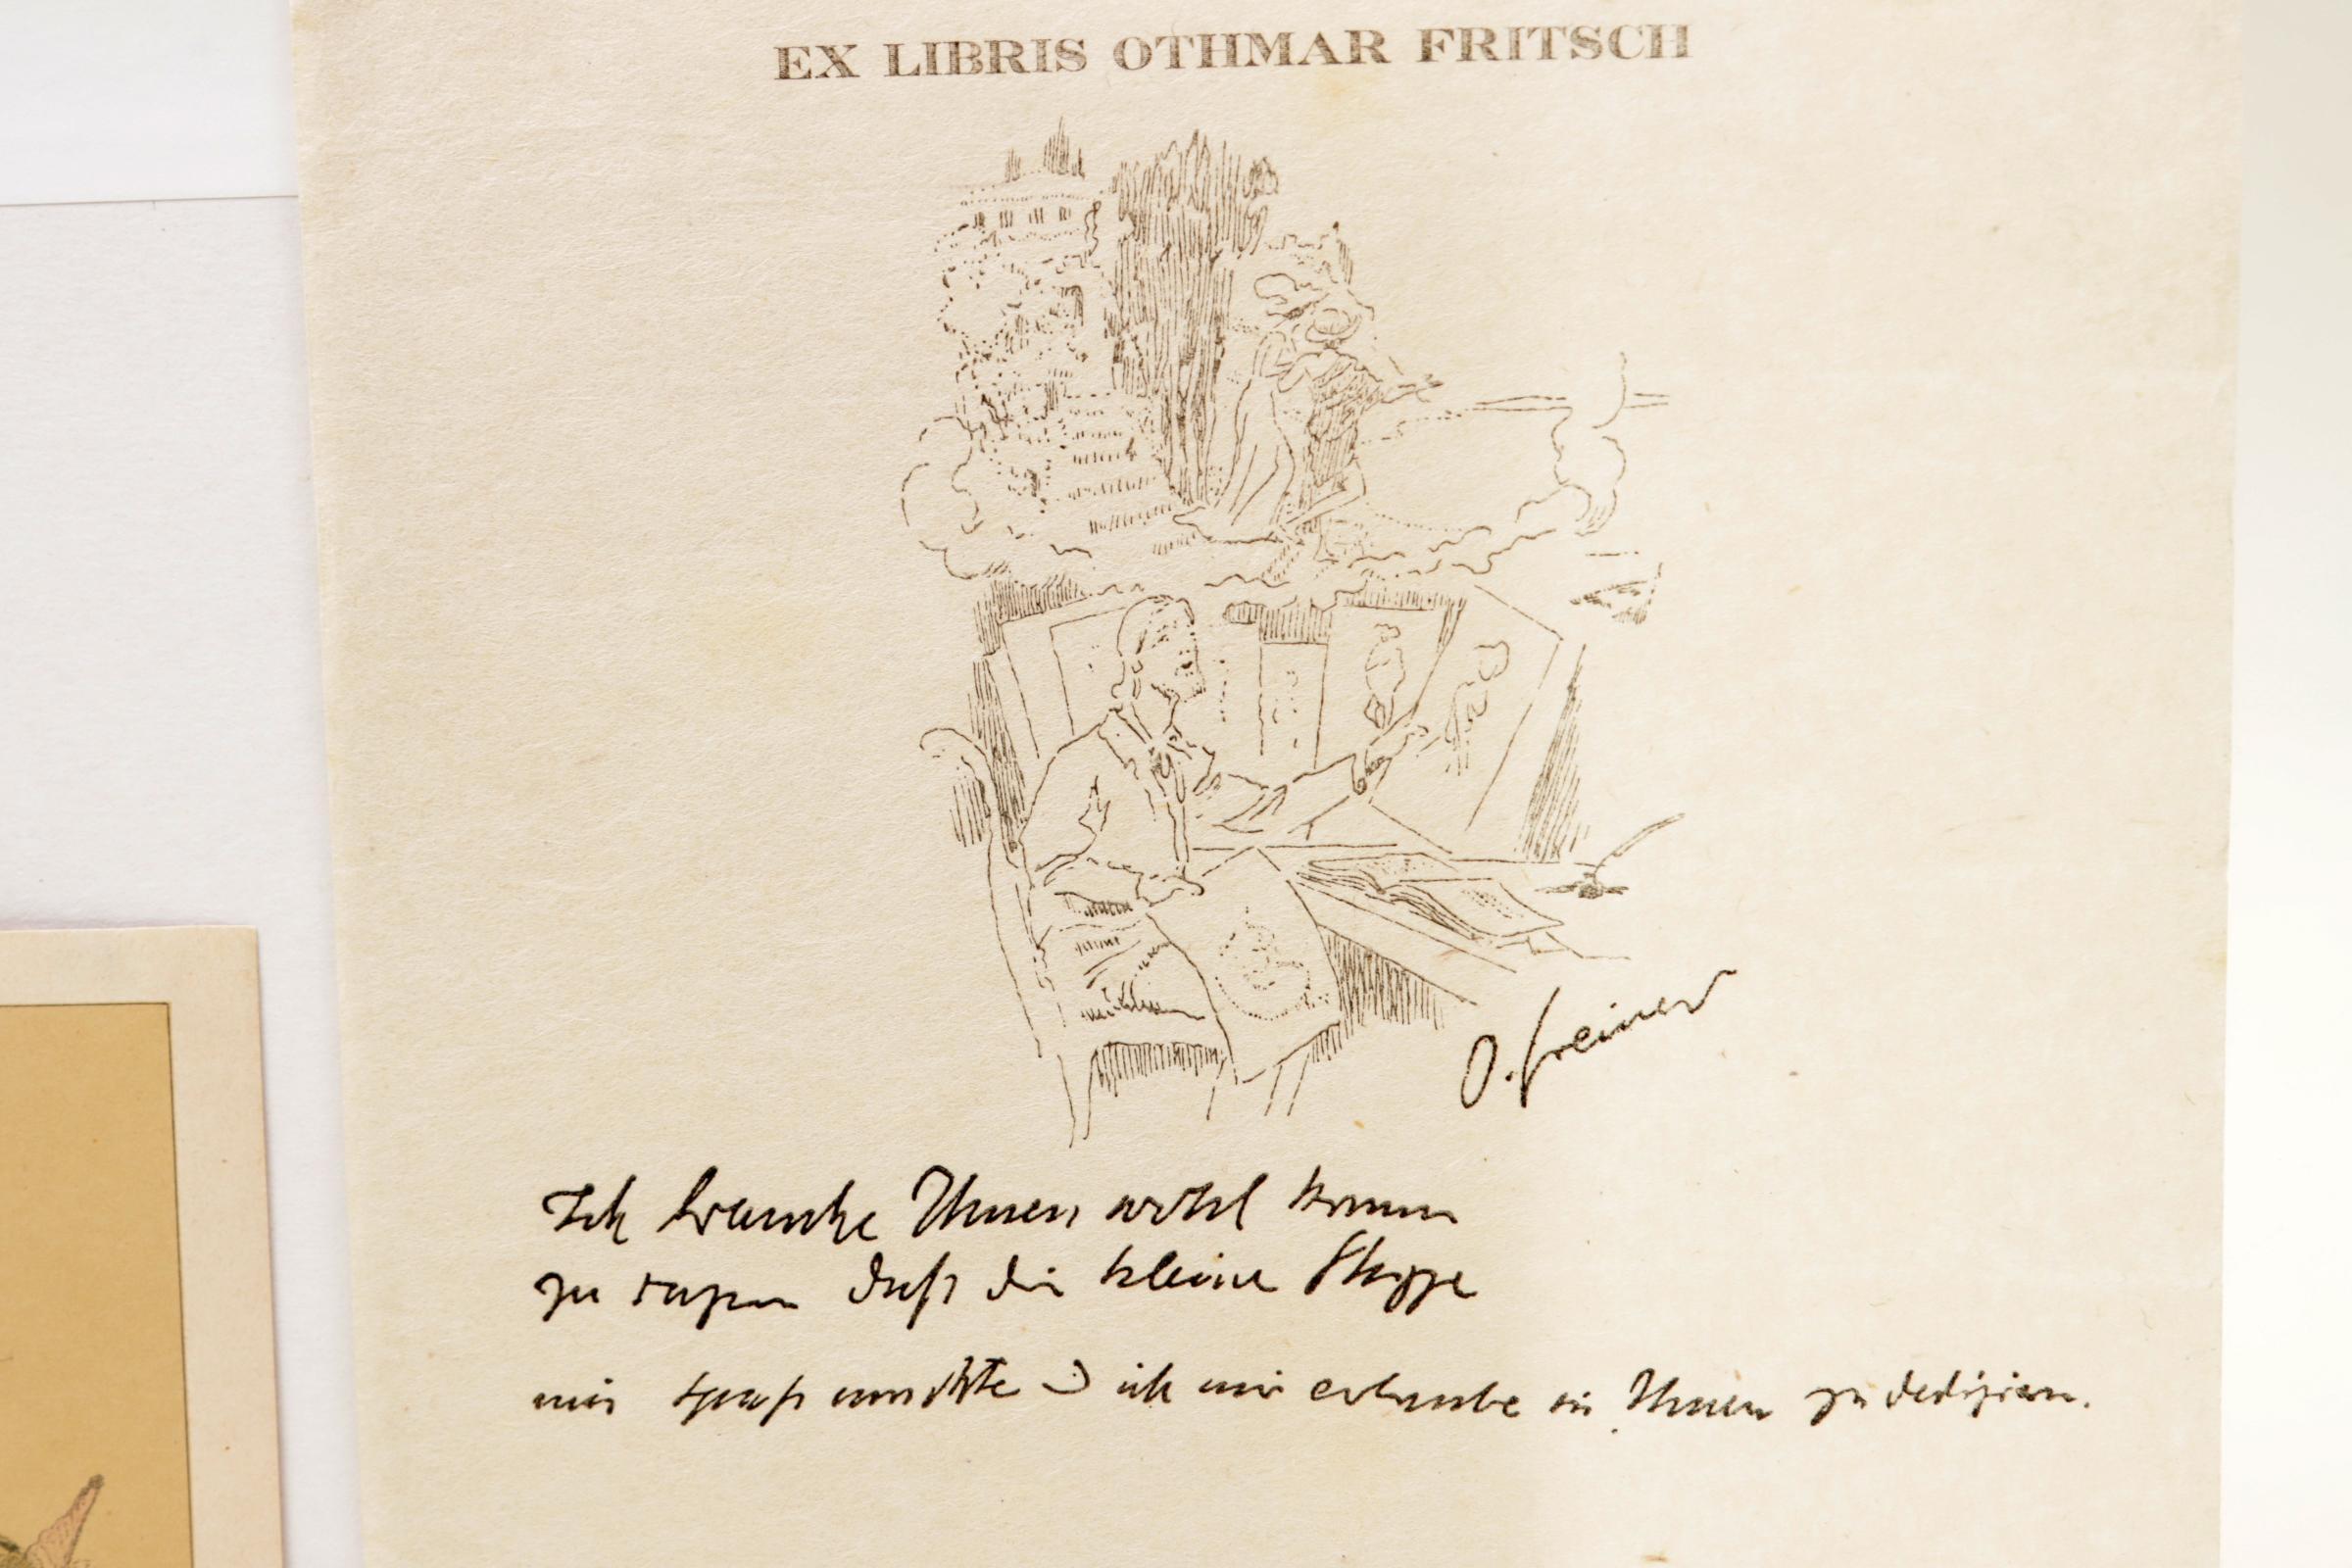 EX LIBRIS OTHMAR FRITSCH
O. Greiner
Ich brauche Ihnen wohl kaum
zu sagen daß die kleine Skizze
mir spaß machte & ich mir erlaube sie Ihnen zu dedizieren.